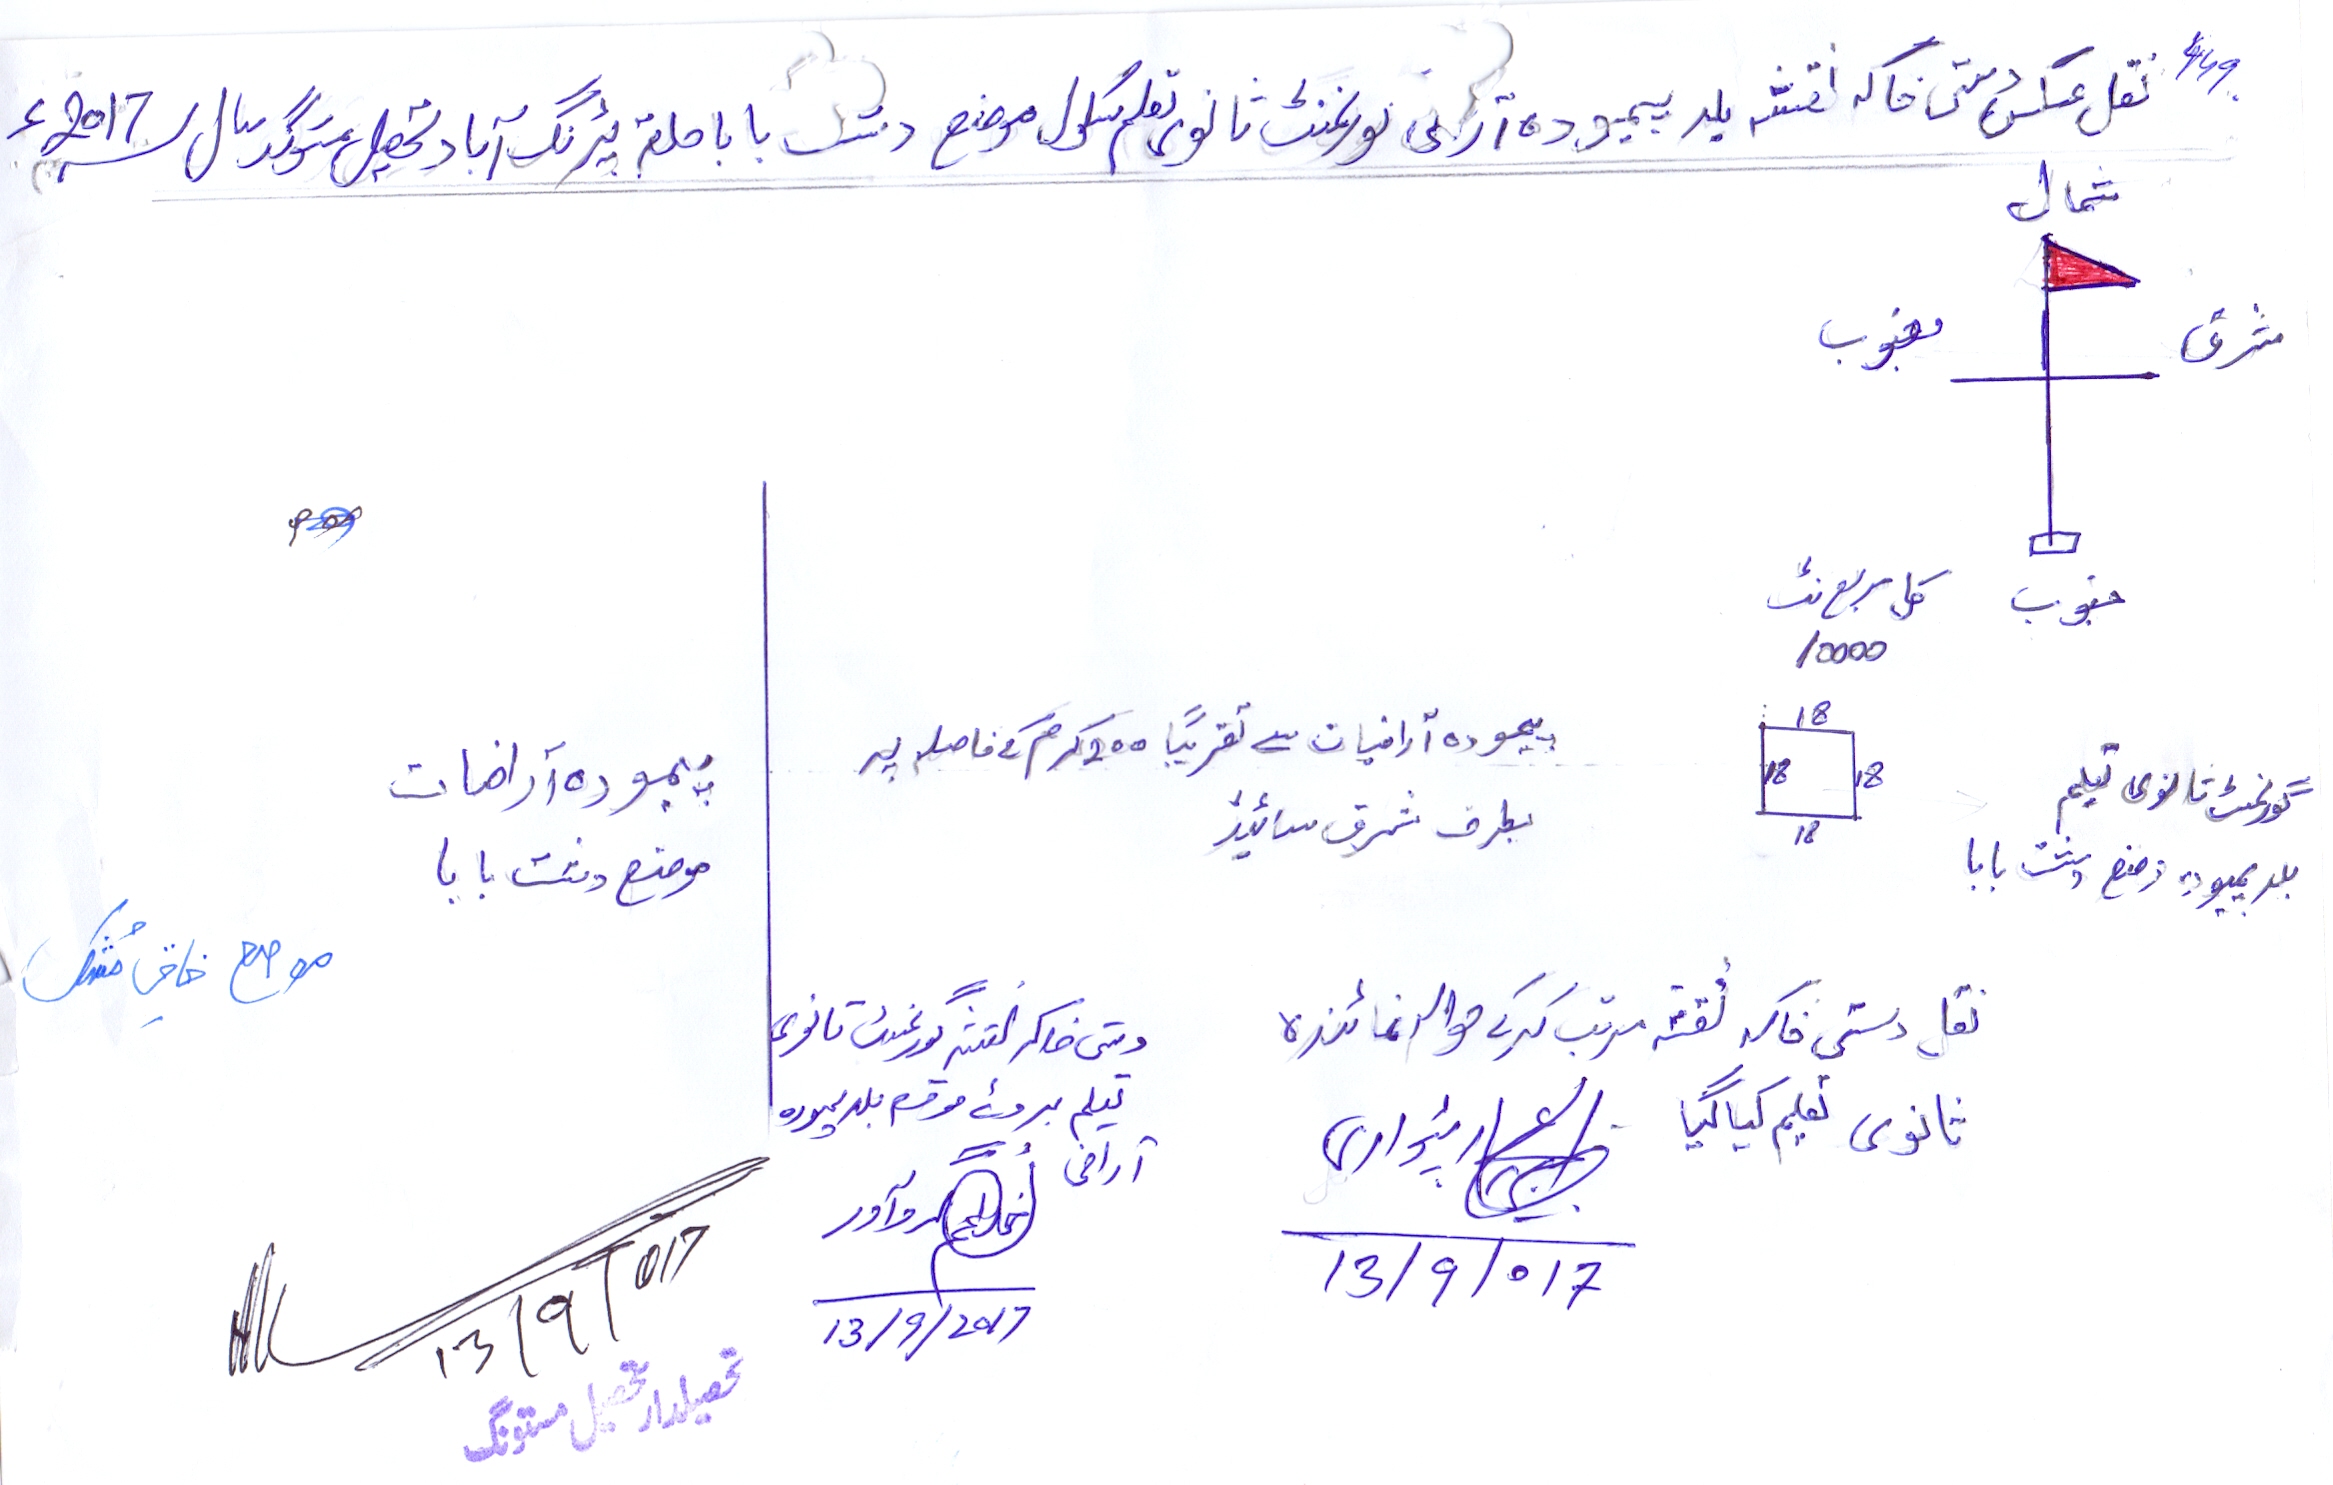 نقل عکس دستی خاکہ نقشہ بلد پیمودہ آراضی گورنمنٹ ثانوی تعلیم سکول موضع دشت بابا حلقہ پڑنگ آباد تحصیل مستونگ سال 2017ء
شمال
مشرق
مغرب
جنوب
کل مربع فٹ
10000
18
18
18
18
گورنمنٹ ثانوی تعلیم
بلد پیمودہ موضع دشت بابا
پیمودہ آراضیات سے تقریباً 200 کرم کے فاصلہ پر
بطرف شرق سائیڈ
پیمودہ آراضیات
موضع دشت بابا
موضع
نقل دستی خاکہ نقشہ مرتب کرکے حوالہ نمائندہ
ثانوی تعلیم کیا گیا
پٹواری
13/9/017
دستی خاکہ نقشہ گورنمنٹ ثانوی
تعلیم بروئے موقع بلد پیمودہ
آراضی
گرداور
13/9/2017
13/9/017
تحصیلدار تحصیل مستونگ